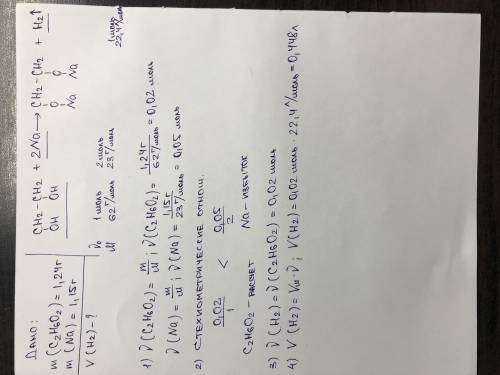 Дано:
m (C2H6O2) = 1,24г
m (Na) = 1,15г
V (H2) - ?
CH2 – CH2 + 2Na → CH2 – CH2 + H2↑
OH OH O O
Na Na
ν0 1 моль 2 моль 1 моль
M 62 г/моль 23 г/моль 22,4 л/моль
1) ν (C2H6O2) = m/M ; ν (C2H6O2) = 1,24г / 62 г/моль = 0,02 моль
ν (Na) = m/M ; ν (Na) = 1,15г / 23 г/моль = 0,05 моль
2) Стехиометрические отнош.
0,02/1 < 0,05/2
C2H6O2 – рассчет Na – избыток
3) ν (H2) = ν (C2H6O2) = 0,02 моль
4) V (H2) = Vм · ν ; V (H2) = 0,02 моль · 22,4 л/моль = 0,448 л